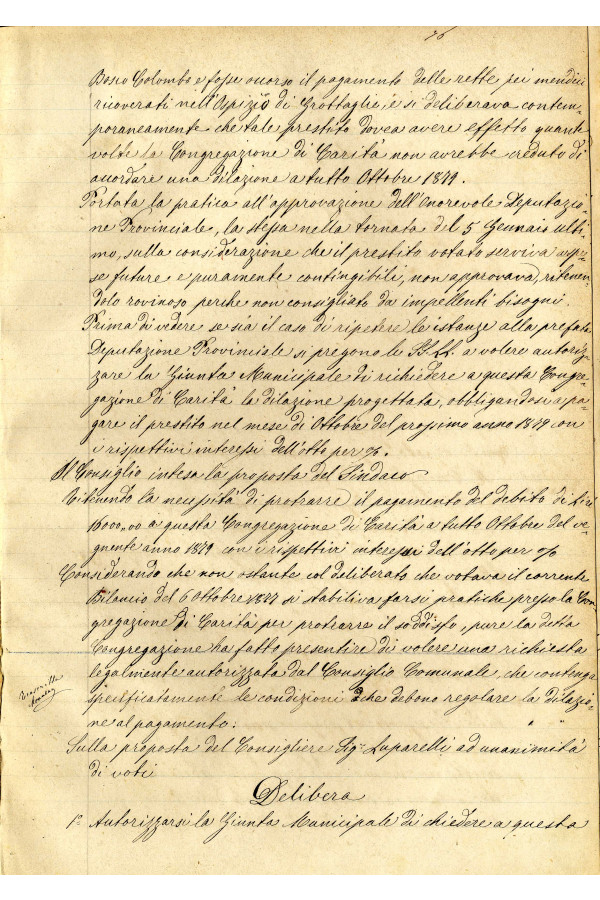 76
Bosco Colombo e fosse occorso il pagamento delle rette pei mendici
ricoverati nell'Ospizio di Grottaglie, e si deliberava contem-
poraneamente che tale prestito dovea avere effetto quante
volte la Congregazione di Carità non avrebbe creduto di
accordare una dilazione a tutto Ottobre 1879.
Portata la pratica all'approvazione dell'Onorevole Deputazio-
ne Provinciale, la stessa nella tornata del 5 Gennaio ulti-
mo, sulla considerazione che il prestito votato serviva a spe-
se future e puramente contingibili, non approvava, ritenen-
dolo rovinoso perche non consigliato da impellenti bisogni.
Prima di vedere se sia il caso di ripetere le istanze alla prefata
Deputazione Provinciale si pregono le SS. LL. a volere autoriz-
zare la Giunta Municipale di richiedere a questa Congre-
gazione di Carità la dilazione progettata, obbligandosi a pa-
gare il prestito nel mese di Ottobre del prossimo anno 1879 con
i rispettivi interessi dell'otto per %.
Il Consiglio intesa la proposta del Sindaco
Ritenendo la necessità di protrarre il pagamento del debito di lire
16000,00 a questa Congregazione di Carità a tutto Ottobre del ve-
gnente anno 1879 con i rispettivi interessi dell'otto per %
Considerando che non ostante col deliberato che votava il corrente
Bilancio del 6 Ottobre 1877 si stabiliva farsi pratiche presso la Con-
gregazione di Carità per protrarre il soddisfo, pure la detta
Congregazione ha fatto presentire di volere una richiesta
legalmente autorizzata dal Consiglio Comunale, che contenga
specificatamente le condizioni che debono regolare la dilazio-
ne al pagamento.
Sulla proposta del Consigliere Sigr. Luparelli ad unanimità
di voti
Delibera
1º Autorizzarsi la Giunta Municipale di chiedere a questa